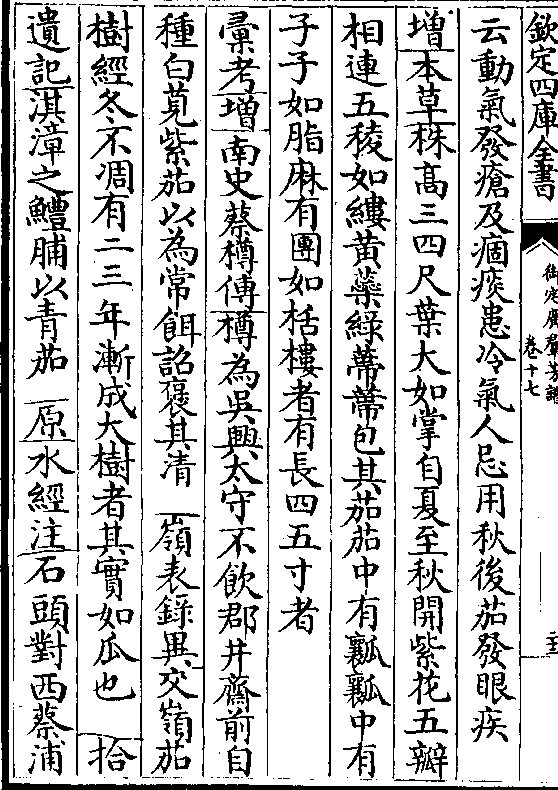 欽定四庫全書
御定廣羣芳譜
卷十七
云動氣發瘡及痼痰患冷氣人忌用秋後茄發眼疾
增本草株高三四尺葉大如掌自夏至秋開紫花五瓣
相連五稜如縷黃蘂綠蔕蔕包其茄茄中有瓤瓤中有
子子如脂麻有團如栝樓者有長四五寸者
彚考增南史蔡樽傳樽為吳興太守不飲郡井齋前自
種白莧紫茄以為常餌詔褒其清　嶺表錄異交嶺茄
樹經冬不凋有二三年漸成大樹者其實如瓜也　拾
遺記淇漳之鱧脯以青茄　原水經注石頭對西蔡浦